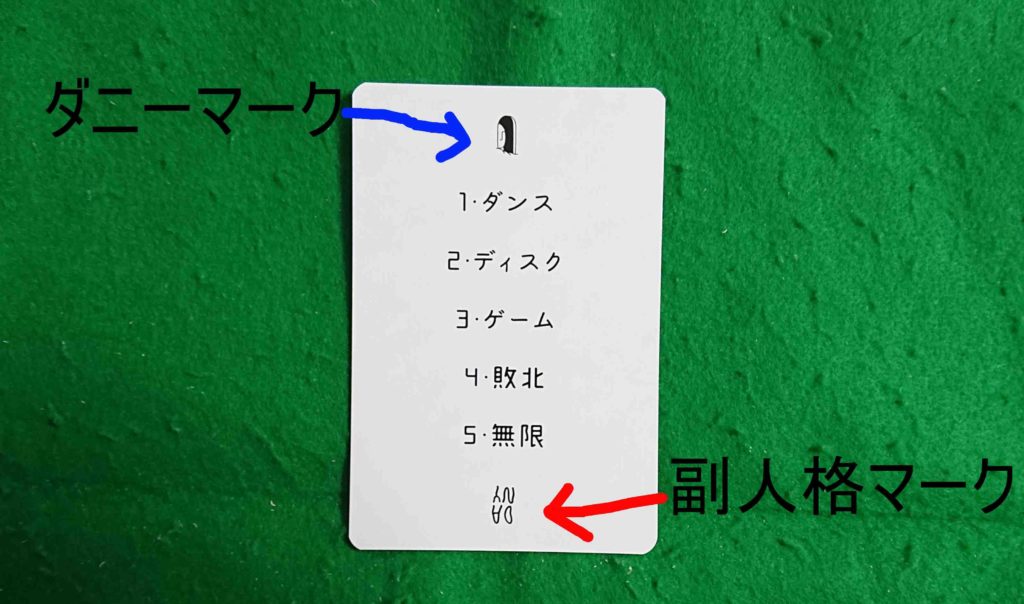 ダニーマーク
1・ダンス
2・ディスク
3・ゲーム
4・敗北
5・無限
副人格マーク
DA
NY